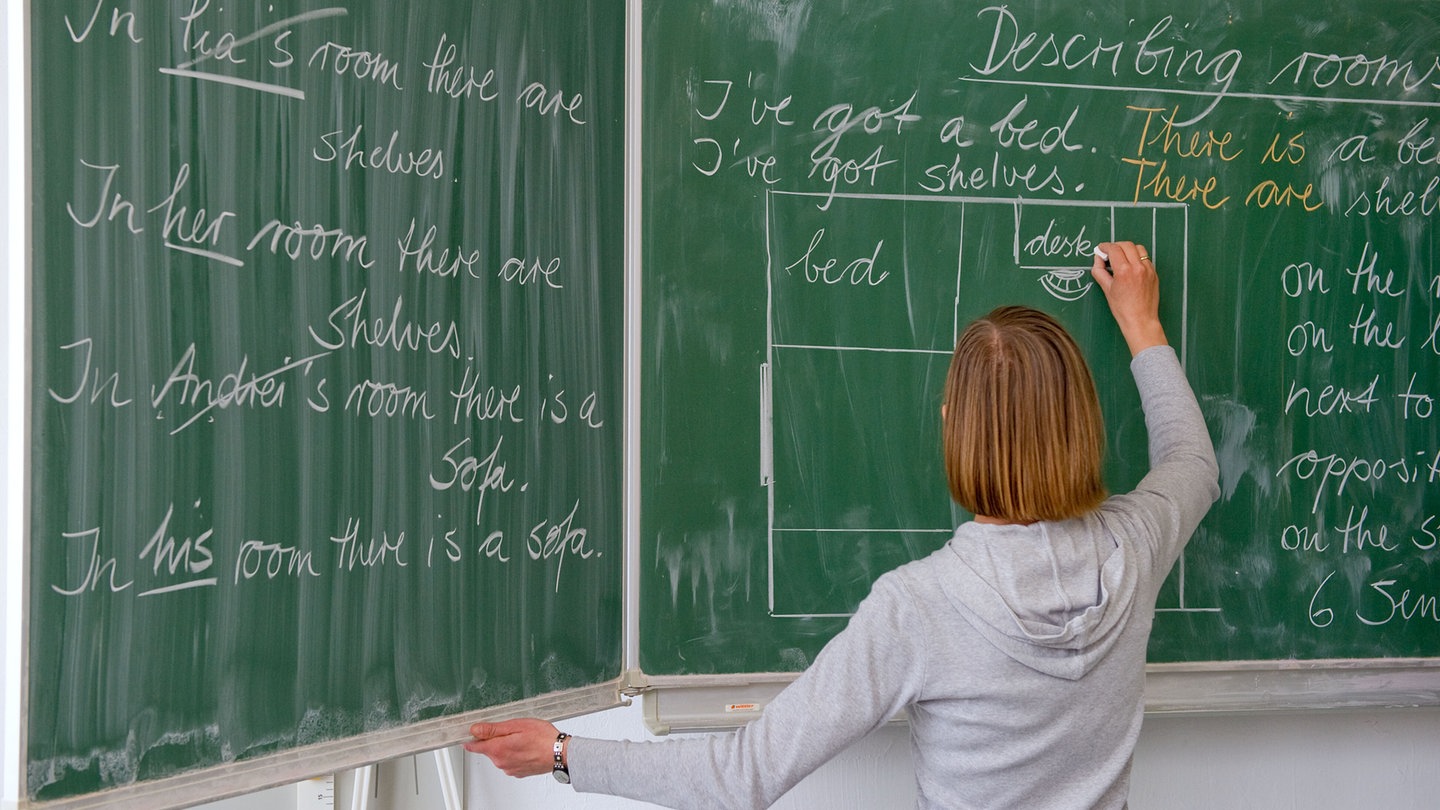 In Pia's room there are
shelves.
In her room there are
shelves.
In Andrei's room there is a
sofa.
In his room there is a sofa.
Describing rooms
I've got a bed. There is a bed
I've got shelves. There are
bed
desk
on the
on the
next to
on the
6